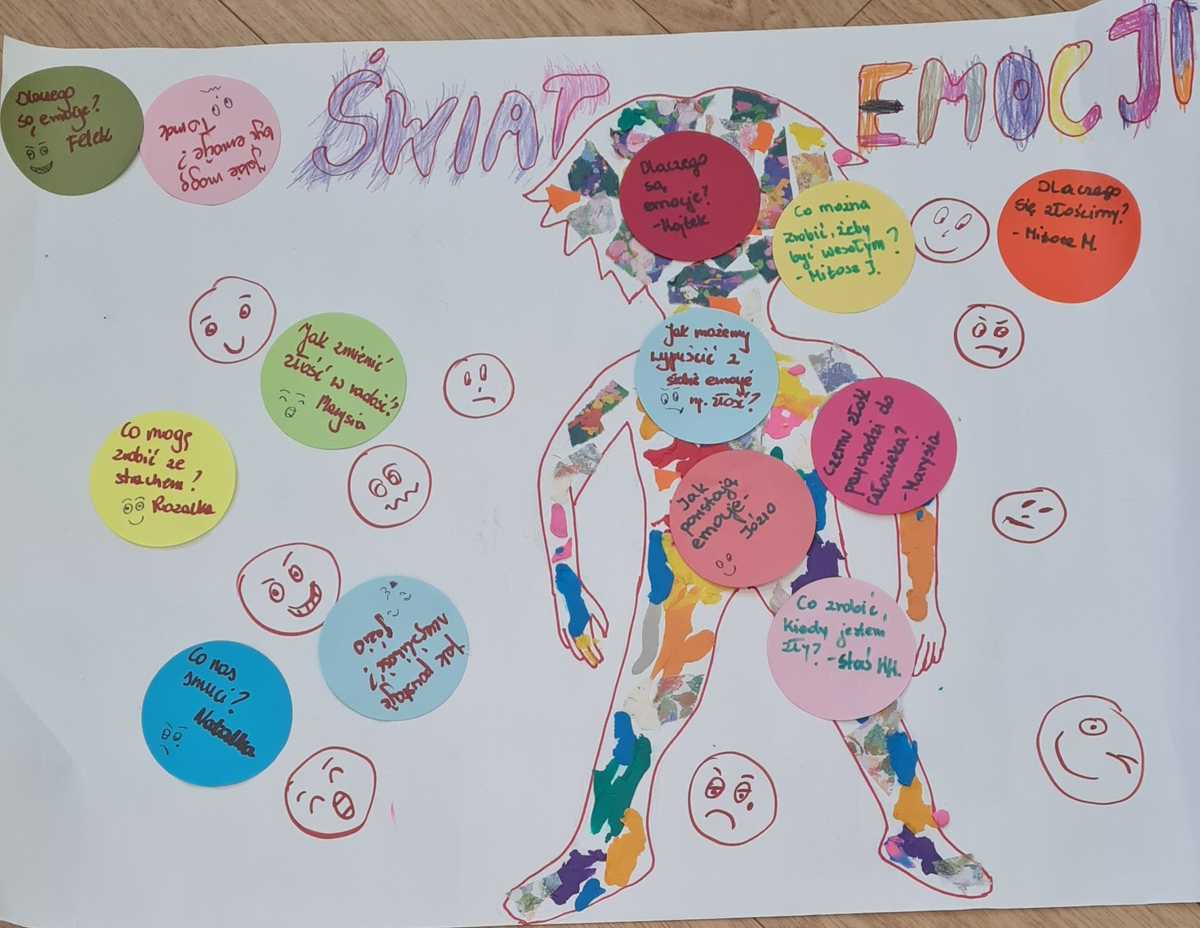 ŚWIAT EMOCJI
Dlaczego
są emocje?
Felek
Jakie mogą
być emocje?
Tomek
Dlaczego
są
emocje?
-Wojtek
Co można
zrobić, żeby
być wesołym?
- Miłosz J.
Dlaczego
się złościmy?
- Miłosz M.
Jak zmienić
złość w radość?
Marysia
Jak możemy
wypuścić z
siebie emocje
np. złość?
Czemu złość
przychodzi do
człowieka?
- Marysia
Co mogę
zrobić ze
strachem?
Rozalka
Jak
powstają
emocje-
Józio
Co zrobić,
kiedy jestem
zły? - Staś
Jak powstaje
Józio
Co nas
smuci?
Natalka